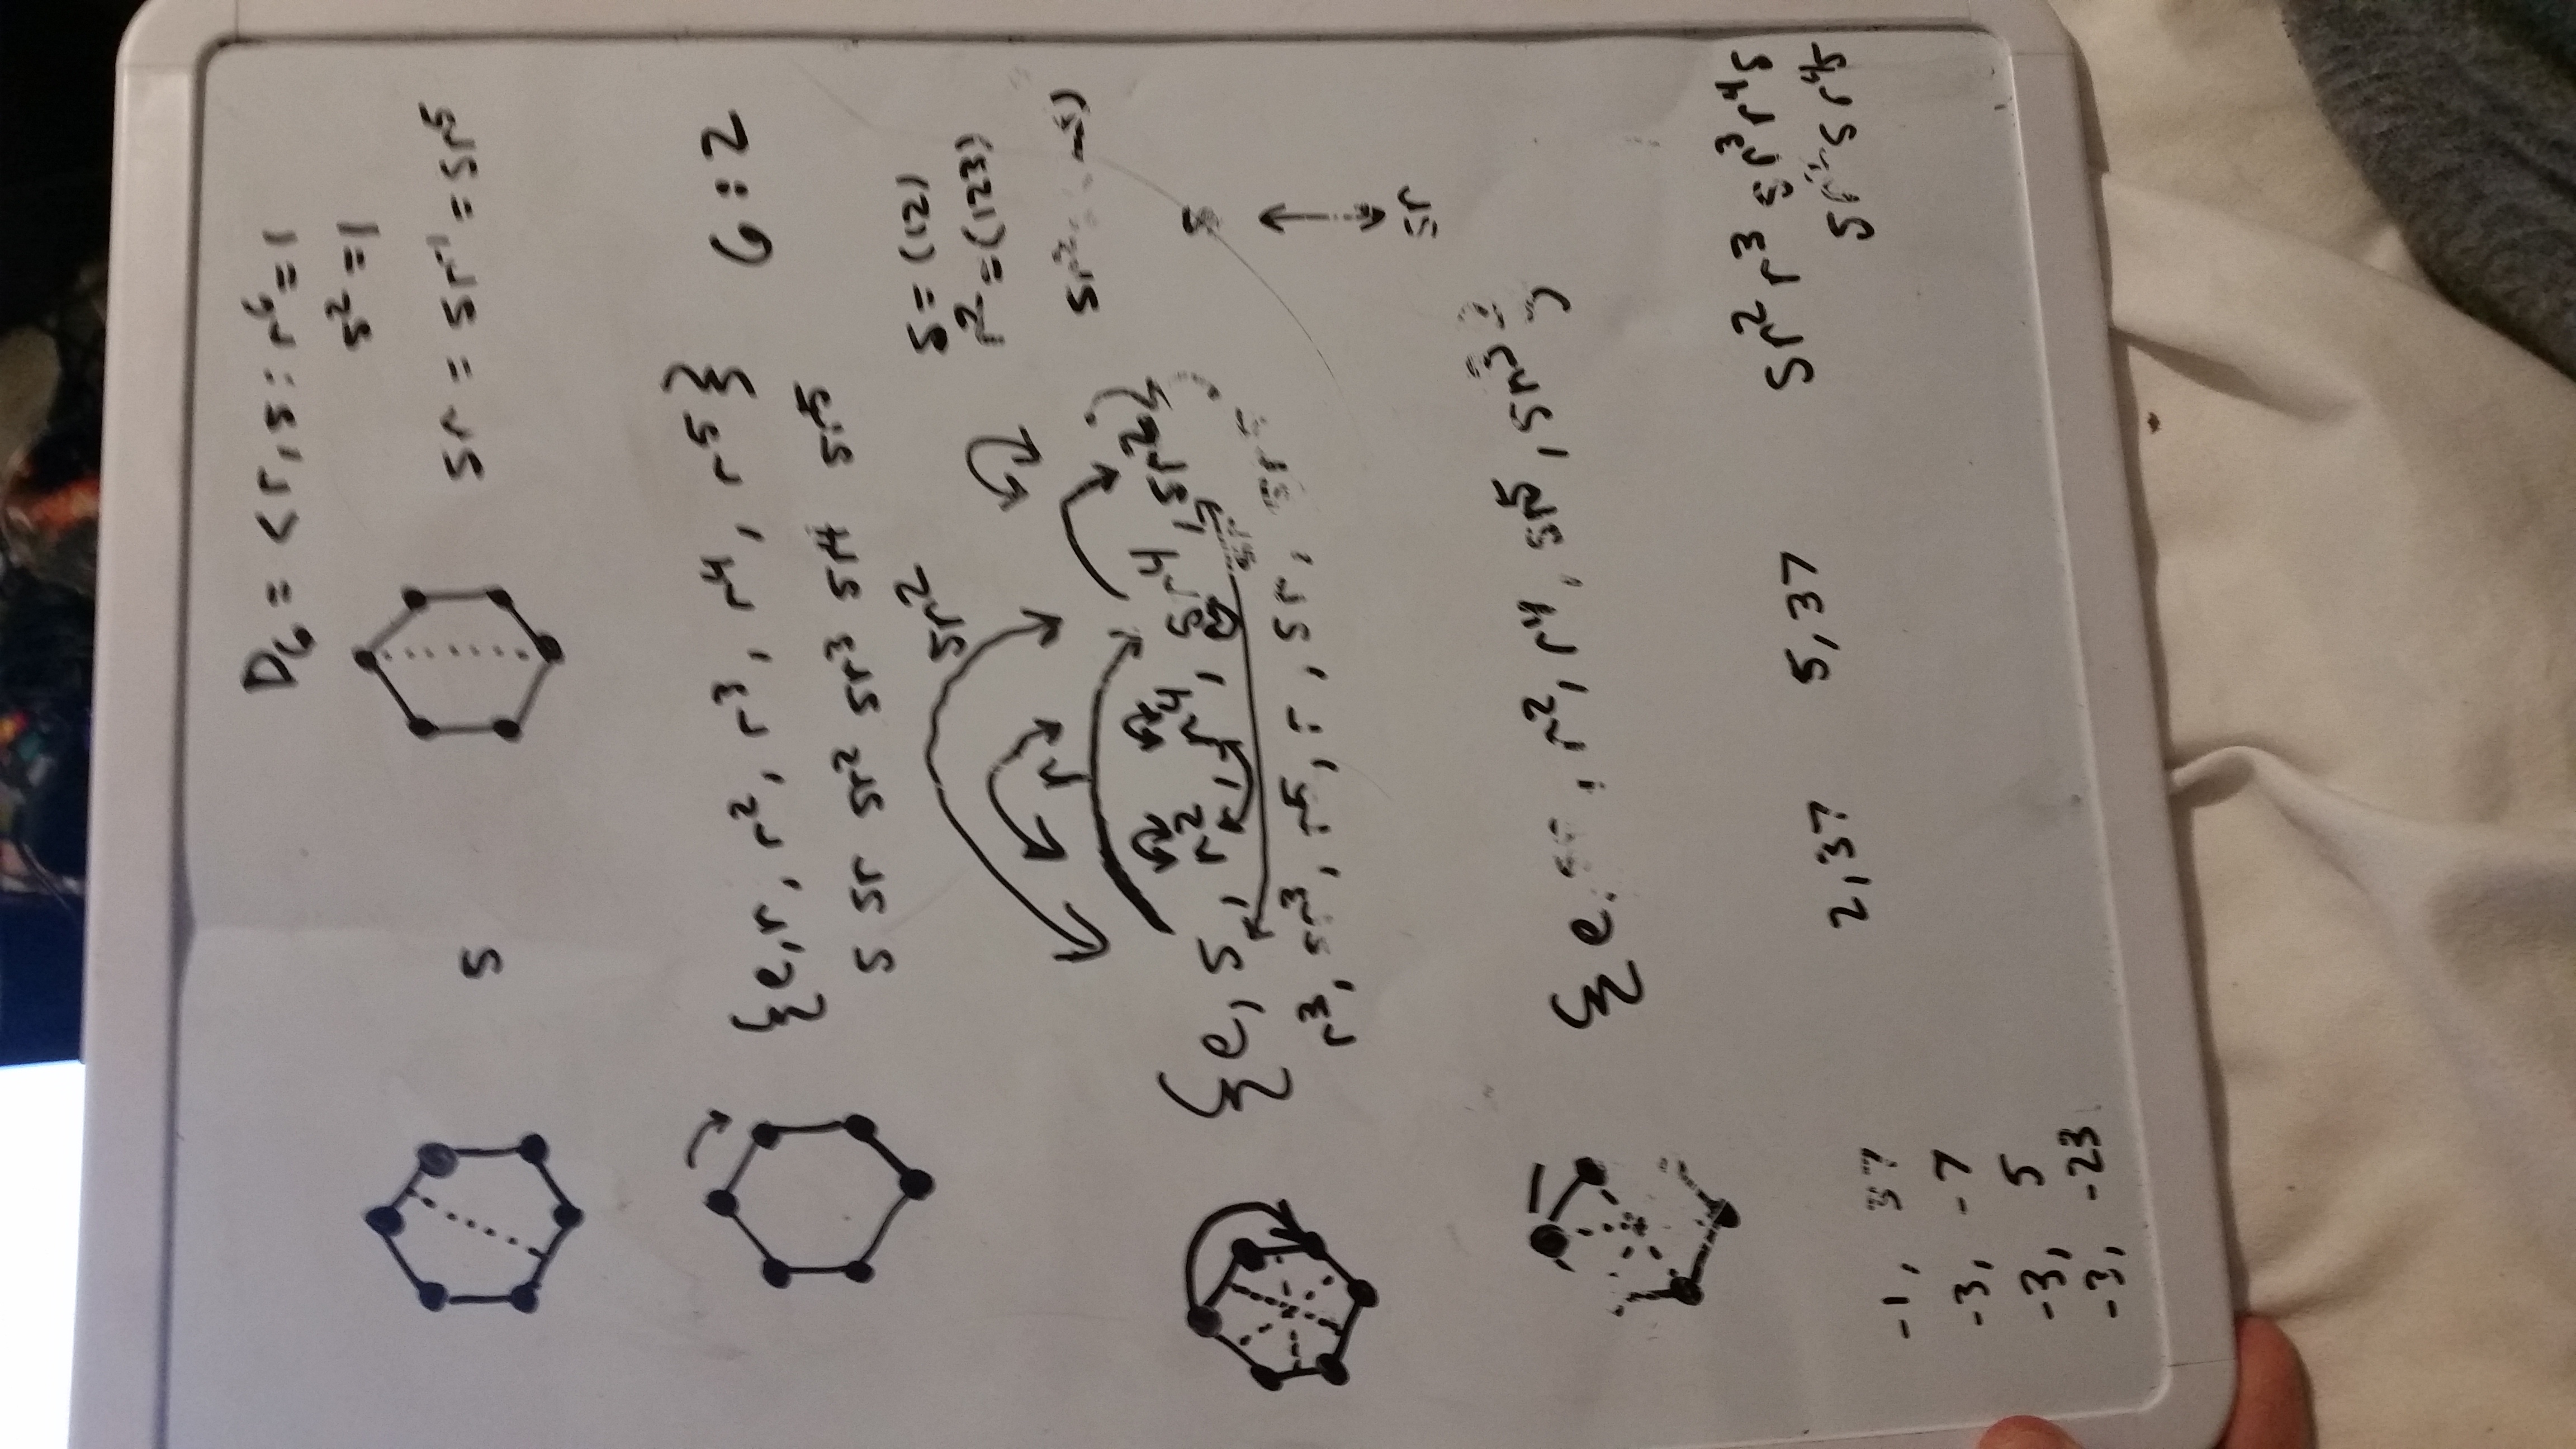 D₆ = <r, s : r⁶ = 1
s² = 1
sr = sr⁻¹ = sr⁵
s
{e, r, r², r³, r⁴, r⁵}
6:2
s sr sr² sr³ sr⁴ sr⁵
sr²
s = (12)
r² = (123)
r
sr²
{e, s, r², r⁴, sr⁴, sr²}
sr
r³, sr³, r⁵, r, sr, sr⁵
s
sr
{e, , r², r⁴, sr⁵, sr³}
sr² r³ sr³ r⁴s
2, 37
5, 37
s sr⁴s
-1, 37
-3, -7
-3, 5
-3, -23